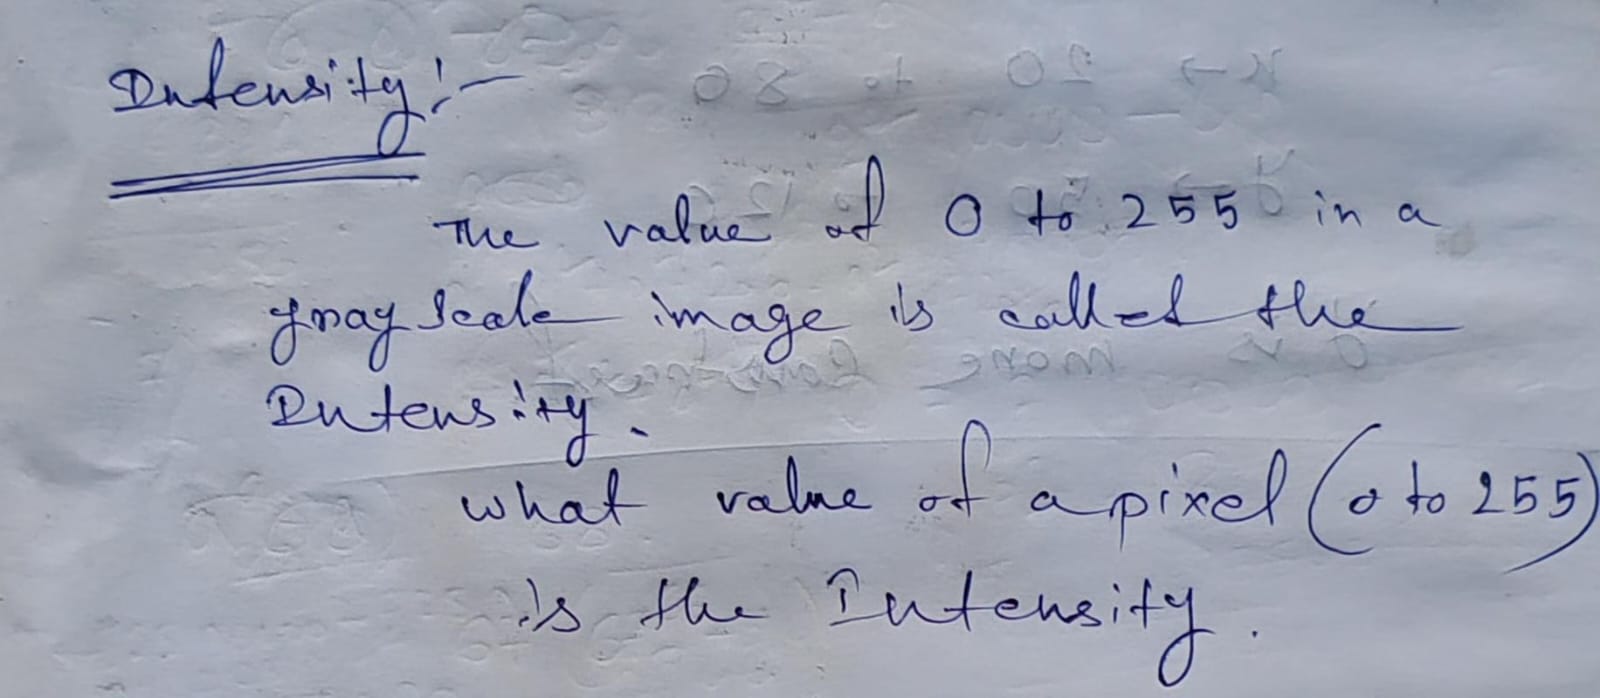 Intensity :-
The value of 0 to 255 in a
gray scale image is called the
Intensity.
what value of a pixel (0 to 255)
is the Intensity.